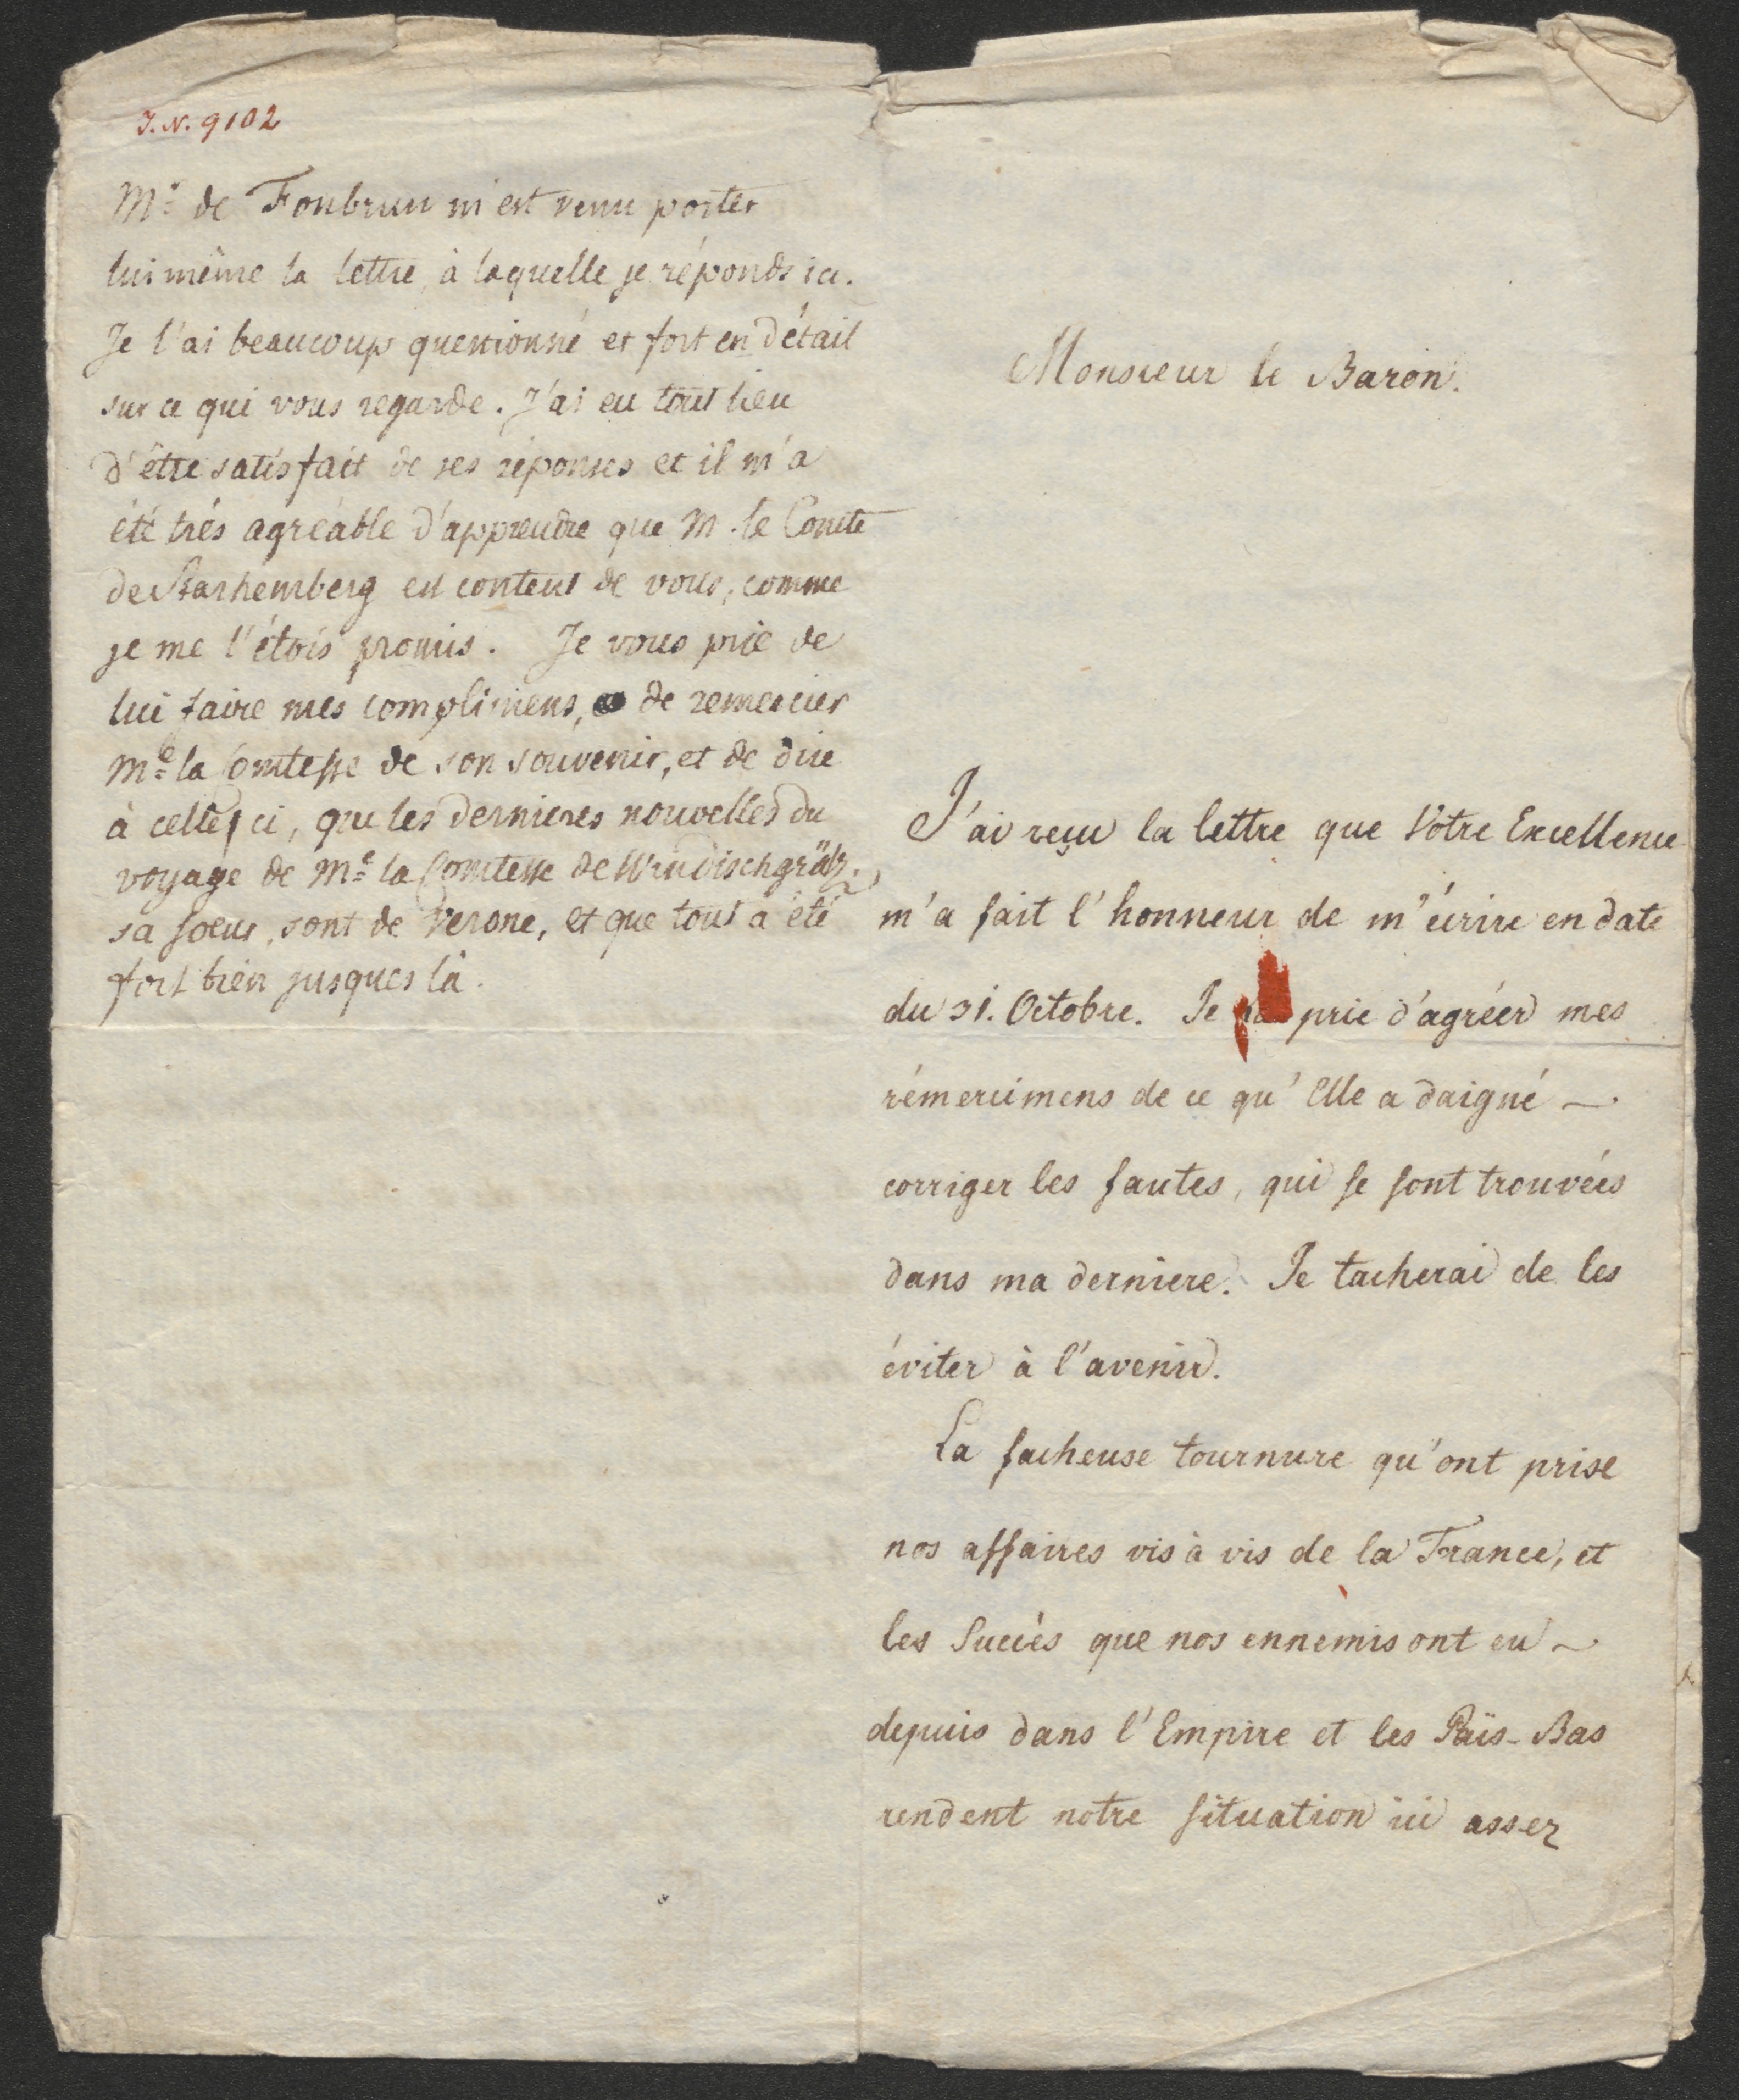 J.N. 9102
Mr de Fonbrun m'est venu porter
lui même la lettre, à laquelle je réponds ici.
Je l'ai beaucoup questionné et fort en détail
sur ce qui vous regarde. J'ai eu tout lieu
d'être satisfait de ses réponses et il m'a
été très agréable d'apprendre que M. le Comte
de Starhemberg est content de vous, comme
je me l'étois promis. Je vous prie de
lui faire mes complimens, de remercier
Me la Comtesse de son souvenir, et de dire
à celle ci, que les dernieres nouvelles du
voyage de Me la Comtesse de Windischgrätz,
sa soeur, sont de Verone, et que tout a été
fort bien jusques là.
Monsieur le Baron.
J'ai reçu la lettre que Votre Excellence
m'a fait l'honneur de m'écrire en date
du 31. Octobre. Je la prie d'agréer mes
rémercimens de ce qu'Elle a daigné —.
corriger les fautes, qui se sont trouvées
dans ma derniere. Je tacherai de les
éviter à l'avenir.
La facheuse tournure qu'ont prise
nos affaires vis à vis de la France, et
les Succès que nos ennemis ont eu ~
depuis dans l'Empire et les Païs-Bas
rendent notre situation ici assez